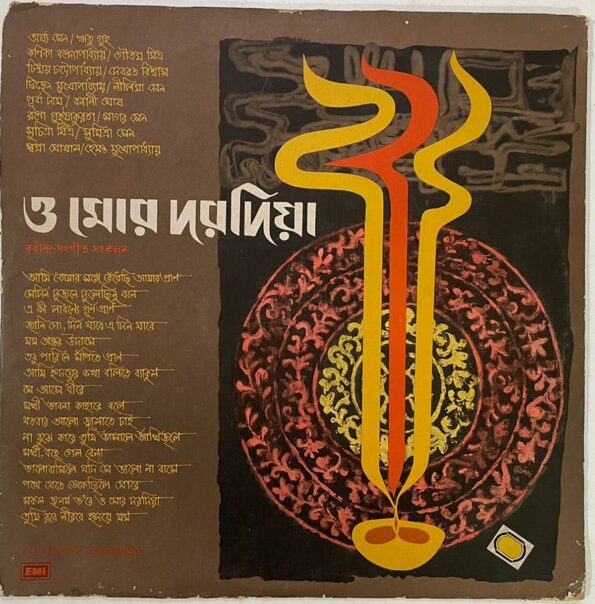 অর্ঘ্য সেন / ঋতু গুহ
কণিকা বন্দ্যোপাধ্যায় / গৌতম মিত্র
চিন্ময় চট্টোপাধ্যায় / দেবব্রত বিশ্বাস
দ্বিজেন মুখোপাধ্যায় / নীলিমা সেন
পূর্বা দাম / বনানী ঘোষ
রুমা গুহঠাকুরতা / সাগর সেন
সুচিত্রা মিত্র / সুমিত্রা সেন
স্বপ্না ঘোষাল / হেমন্ত মুখোপাধ্যায়
ও মোর দরদিয়া
রবীন্দ্র-সংগীত সংকলন
আমি তোমার সঙ্গে বেঁধেছি আমার প্রাণ
সেদিন দুজনে দুলেছিনু বনে
এ কী লাবণ্যে পূর্ণ প্রাণ
জানি গো, দিন যাবে এ দিন যাবে
মম অন্তর উদাসে
তবু পারি নে সঁপিতে প্রাণ
আমি হৃদয়ের কথা বলিতে ব্যাকুল
সে আসে ধীরে
সখী ভাবনা কাহারে বলে
যতবার আলো জ্বালাতে চাই
না বুঝে কারে তুমি ভাসালে আঁখিজলে
সখী, বহে গেল বেলা
ভালোবাসিলে যদি সে ভালো না বাসে
পথে যেতে ডেকেছিলে মোরে
সকল জনম ভ'রে ও মোর দরদিয়া
তুমি রবে নীরবে হৃদয়ে মম
EMI